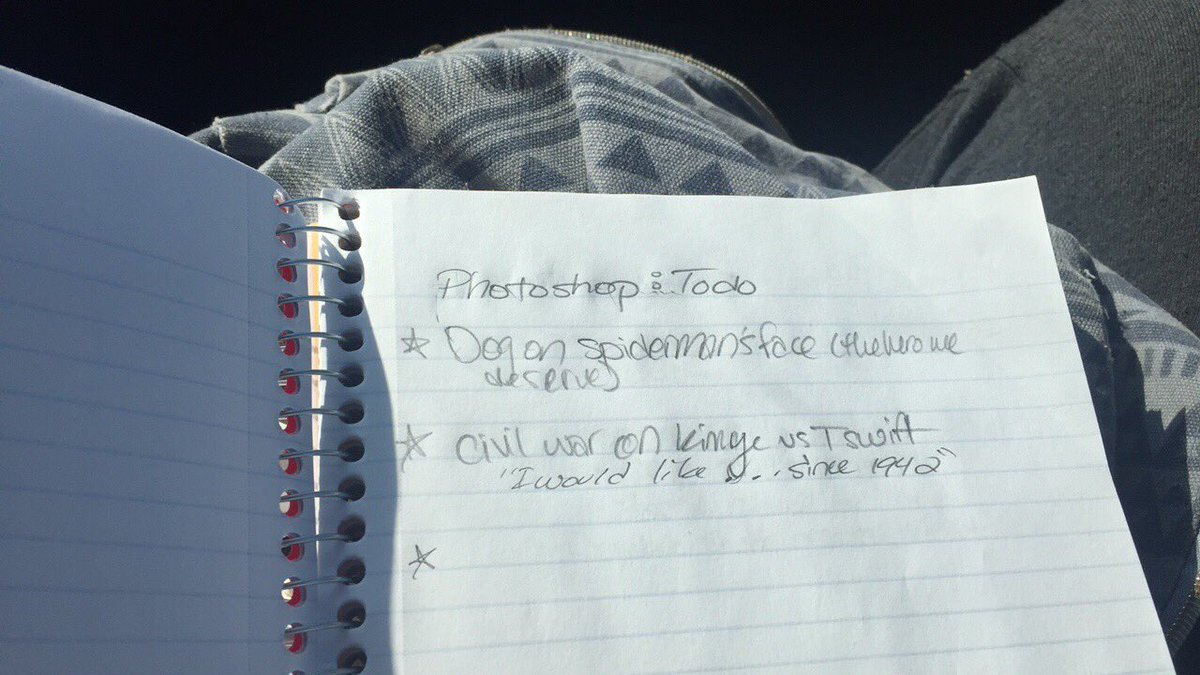 Photoshop : Todo
☆ Dog on spiderman's face (the hero we
deserve)
☆ Civil war on kimye vs T swift
"I would like ... since 1942"
☆